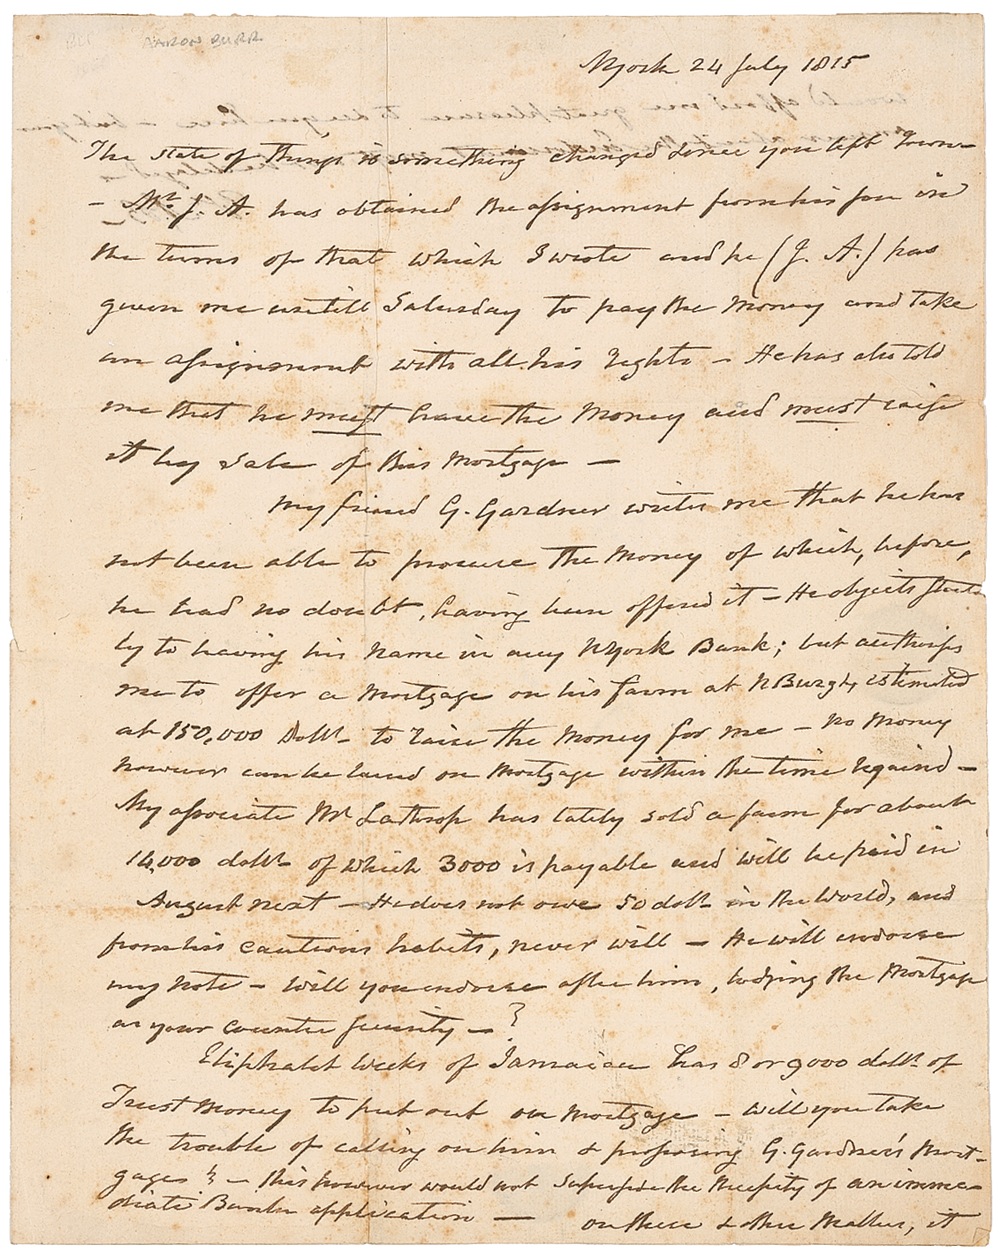 AARON BURR
NYork 24 July 1815
The state of things is something changed since you left Town—
— Mr. J. A. has obtained the assignment from his son in
the terms of that which I wrote and he (J. A.) has
given me untill Saturday to pay the money and take
an assignment with all his rights — He has also told
me that he must have the money and must raise
it by sale of this Mortgage —
My friend G. Gardner writes me that he has
not been able to procure the money of which, before,
he had no doubt, having been offered it — He objects
ly to having his name in any NYork Bank; but authorises
me to offer a mortgage on his farm at NBurgh, estimated
at 150,000 Dolls. to raise the money for me — no money
however can be raised on mortgage within the time required —
My associate Mr Lathrop has lately sold a farm for about
14,000 dolls. of which 3000 is payable and will be paid in
August next — He does not owe 50 dolls. in the world, and
from his cautious habits, never will — He will endorse
my note — Will you endorse after him, lodging the mortgage
as your counter security — ?
Eliphalet Weeks of Jamaica has 8 or 9000 dolls. of
Trust money to put out on mortgage — Will you take
the trouble of calling on him & proposing G. Gardner's Mort-
gages ? — this however would not supersede the necessity of an imme-
diate Bank application — on these & other matters, it